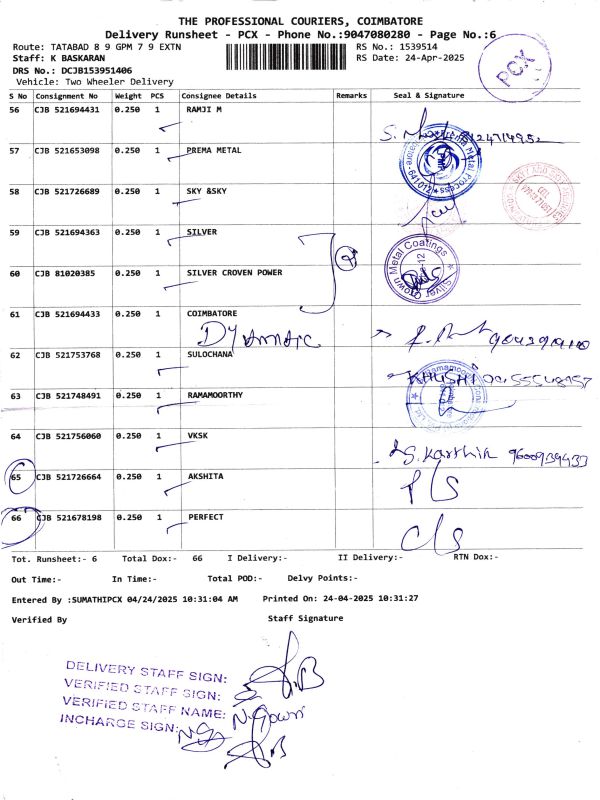 THE PROFESSIONAL COURIERS, COIMBATORE
Delivery Runsheet - PCX - Phone No.:9047080280 - Page No.:6
Route: TATABAD 8 9 GPM 7 9 EXTN
RS No.: 1539514
Staff: K BASKARAN
RS Date: 24-Apr-2025
DRS No.: DCJB153951406
Vehicle: Two Wheeler Delivery
PCX
S No Consignment No Weight PCS Consignee Details Remarks Seal & Signature
56 CJB 521694431 0.250 1 RAMJI M
57 CJB 521653098 0.250 1 PREMA METAL
58 CJB 521726689 0.250 1 SKY &SKY
59 CJB 521694363 0.250 1 SILVER
60 CJB 81020385 0.250 1 SILVER CROVEN POWER
Silver Crown Metal Coatings
61 CJB 521694433 0.250 1 COIMBATORE
62 CJB 521753768 0.250 1 SULOCHANA
KHUSHI
63 CJB 521748491 0.250 1 RAMAMOORTHY
64 CJB 521756060 0.250 1 VKSK
S. Karthik
65 CJB 521726664 0.250 1 AKSHITA
66 CJB 521678198 0.250 1 PERFECT
Tot. Runsheet:- 6 Total Dox:- 66 I Delivery:- II Delivery:- RTN Dox:-
Out Time:- In Time:- Total POD:- Delvy Points:-
Entered By :SUMATHIPCX 04/24/2025 10:31:04 AM Printed On: 24-04-2025 10:31:27
Verified By Staff Signature
DELIVERY STAFF SIGN:
VERIFIED STAFF SIGN:
VERIFIED STAFF NAME: N. Gowri
INCHARGE SIGN: